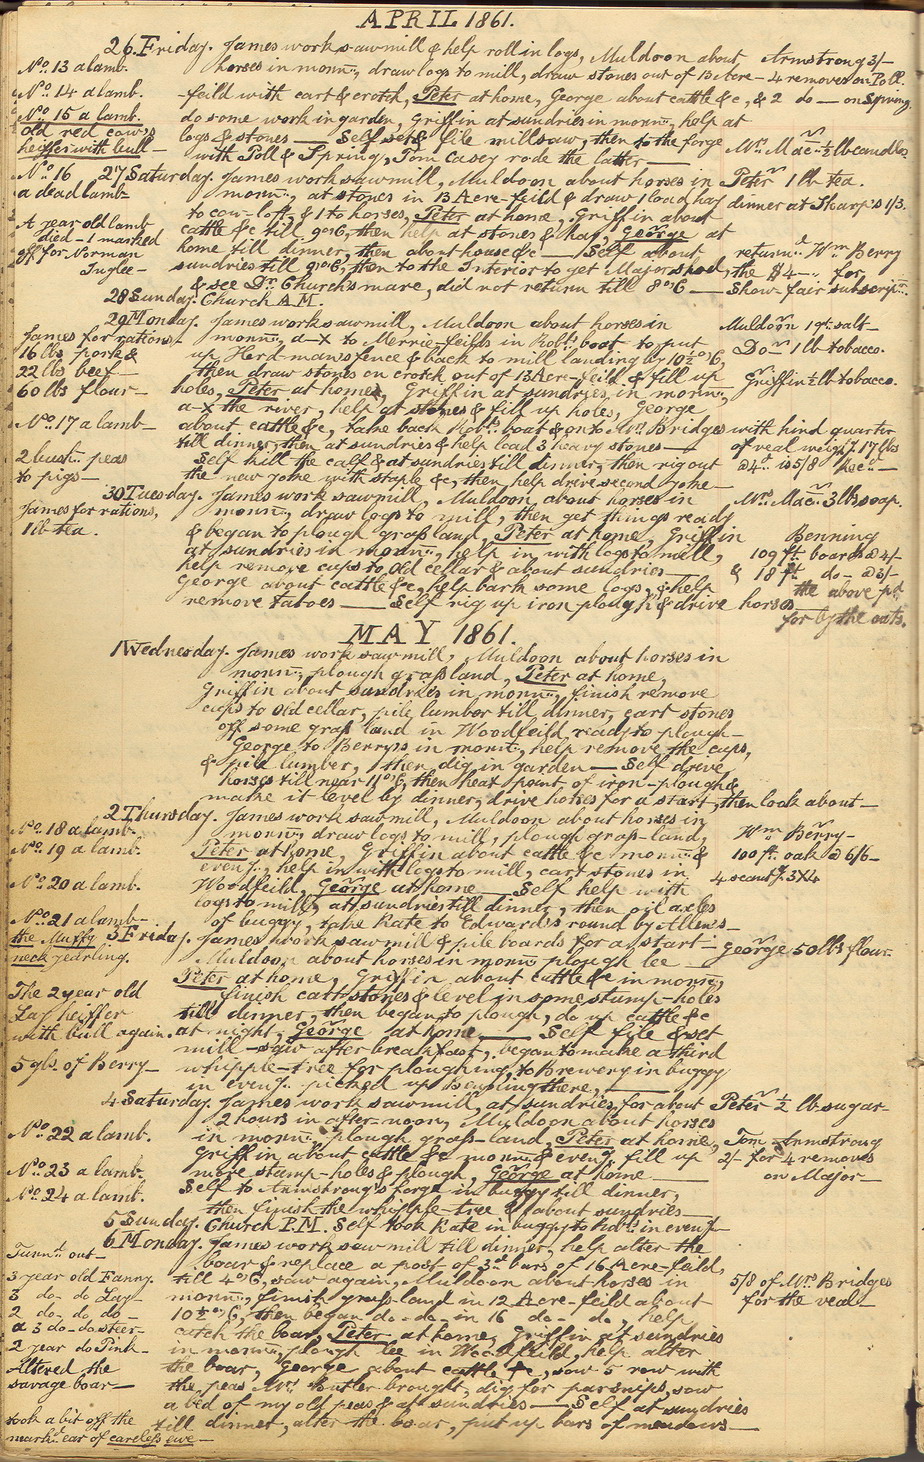 APRIL 1861.
26 Friday. James work sawmill & help roll in logs, Muldoon about
Armstrong 3/-
No. 13 a lamb.
horses in mornn., draw logs to mill, draw stones out of 13 Acre-
4 removes on Poll.
No. 14 a lamb.
feild with cart & crotch, Peter at home, George about cattle &c,
& 2 do — on Spring
No. 15 a lamb.
do some work in garden, Griffin at sundries in mornn., help at
old red cow's
logs & stones — Self set & file millsaw, then to the forge
Mrs. Macn. ½ lb candles
heiffer with bull —
with Poll & Spring, Tom Casey rode the latter —
No. 16
27 Saturday. James work sawmill, Muldoon about horses in
Peter 1 lb tea.
a dead lamb—
mornn., at stones in 13 Acre-feild & draw 1 load hay
dinner at Sharp's 1/3.
to cow-loft, & 1 to horses, Peter at home, Griffin about
A year old lamb
cattle &c till 9 o'6, then help at stones & hay, George at
died — 1 marked
home till dinner, then about house &c — Self about
returnd. Wm Berry
off for Norman
sundries till 9 o'6, then to the Interior to get Major shod,
the $4 — for
Inglee —
& see Dr. Church's mare, did not return till 8 o'6 —
Show-fair subscripn.
28 Sunday. Church A.M.
29 Monday. James work sawmill, Muldoon about horses in
Muldoon 1 qt. salt —
James for rations —
mornn., a-X to Merrie-feilds in Robt. boat to put
Do — 1 lb tobacco.
16 lbs pork &
up Herd-mans fence & back to mill landing by 10½ o'6,
22 lbs beef —
then draw stones on crotch out of 13 Acre-feild & fill up
Griffin ½ lb tobacco.
60 lbs flour —
holes, Peter at home, Griffin at sundries in mornn.,
a-X the river, help at stones & fill up holes, George
No. 17 a lamb —
about cattle &c, take back Robt. boat & on to Mr. Bridges with hind quarter
till dinner, then at sundries & help load 3 heavy stones —
of veal weigg. 17 lbs
2 bush. peas
Self kill the calf & at sundries till dinner, then rig out
@ 4d. is 5/8
to pigs —
the new yoke with staple &c, then help drive second yoke —
30 Tuesday. James work sawmill, Muldoon about horses in
Mrs. Macn. 3 lbs soap.
James for rations,
mornn., draw logs to mill, then get things ready
1 lb tea.
& began to plough grass land, Peter at home, Griffin
Benning
at sundries in mornn., help in with logs to mill,
109 ft. boards @ 4/-
help remove cups to Old cellar & about sundries —
& 18 ft do — @ 3/-
George about cattle &c, help bark some logs, & help
the above pd.
remove tatoes — Self rig up iron plough & drive horses
for by the oats.
MAY 1861.
1 Wednesday. James work sawmill, Muldoon about horses in
mornn., plough grass land, Peter at home,
Griffin about sundries in mornn., finish remove
cups to Old cellar, pile lumber till dinner, cart stones
off some grass land in Woodfeild, ready to plough —
George to Berry's in mornn., help remove the cups,
& pile lumber, then dig in garden — Self drive
horses till near 11 o'6, then heat point of iron-plough &
make it level by dinner, drive horses for a start, then look about —
2 Thursday. James work sawmill, Muldoon about horses in
No. 18 a lamb.
mornn., draw logs to mill, plough grass-land,
Wm Berry —
No. 19 a lamb.
Peter at home, Griffin about cattle &c mornn. &
100 ft. oak @ 6/6 —
eveng., help in with logs to mill, cart stones in
4 scantg. 3X4
No. 20 a lamb.
Woodfeild, George at home — Self help with
logs to mill, at sundries till dinner, then oil axles
No. 21 a lamb —
of buggy, take Kate to Edwards round by Allen's —
the Muffy
3 Friday. James work sawmill & pile boards for a start —
George 50 lbs flour.
neck yearling.
Muldoon about horses in mornn. plough lee —
Peter at home, Griffin about cattle &c in mornn.,
The 2 year old
finish cart stones & level in some stump-holes
Lay heiffer
till dinner, then began to plough, do up cattle &c
with bull again.
at night, George at home, — Self file & set
mill-saw after breakfast, began to make a third
5 gls. of Berry —
whipple-tree for ploughing, to Brewery in buggy
in eveng. picked up Benning there, —
4 Saturday. James work sawmill, at sundries, for about
Peter ½ lb sugar —
2 hours in after-noon, Muldoon about horses
No. 22 a lamb.
in mornn. plough grass-land, Peter at home,
Tom Armstrong
Griffin about cattle &c mornn. & eveng. fill up
2/- for 4 removes
No. 23 a lamb.
more stump-holes & plough, George at home —
on Major —
No. 24 a lamb.
Self to Armstrong's forge in buggy till dinner,
then finish the whipple-tree & about sundries —
5 Sunday. Church P.M. Self took Kate in buggy to Robt. in eveng. —
6 Monday. James work saw mill till dinner, help alter the
Turnd. out —
boar & replace a post of 3d. bars of 16 Acre-feild,
3 year old Fanny.
till 4 o'6, saw again, Muldoon about horses in
5/8 of Mr. Bridges
3 do — do Lay —
mornn., finish grass-land in 12 Acre-feild about
for the veal —
2 do — do — do —
10½ o'6, then began do — do — in 16 do — do, help
a 3 do — do steer —
catch the boar, Peter, at home, Griffin at sundries
2 year do Pink —
in mornn., plough lee in Woodfeild, help alter
Altered the
the boar, George about cattle &c, sow 5 row with
savage boar —
the peas Mrs. Butler brought, dig for parsnips, sow
a bed of my old peas & at sundries — Self at sundries
took a bit off the
till dinner, alter the boar, put up bars of meadows —
markd. ear of careless ewe —